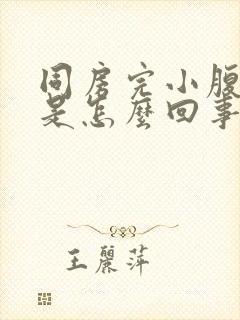 同房完小腹
是怎麼回事
王麗萍